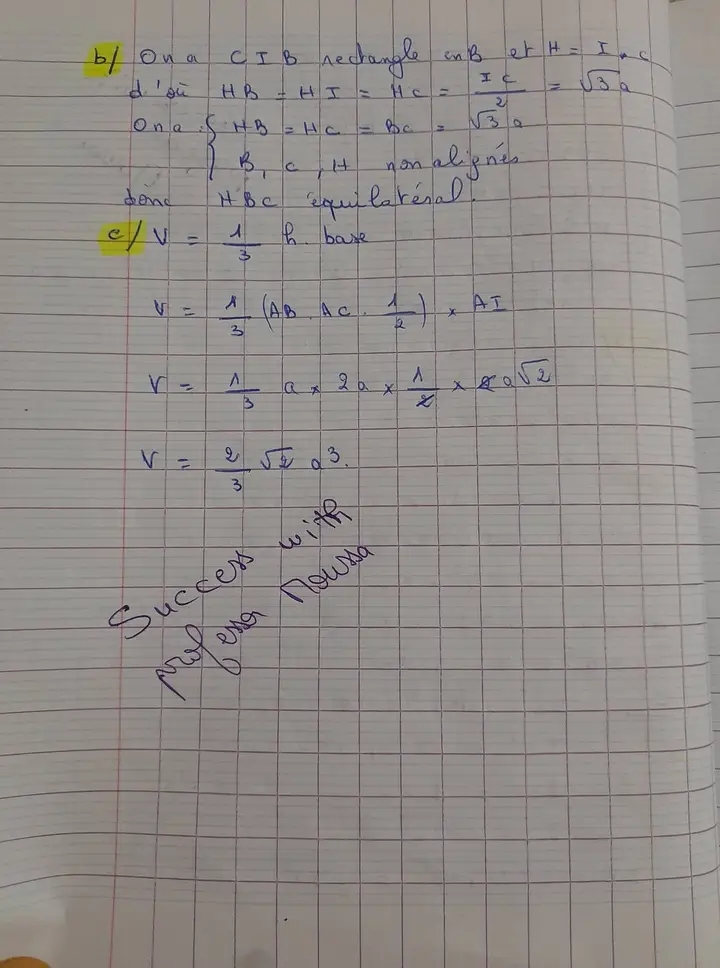 b/ On a CIB rectangle en B et H = I * C
d'où HB = HI = HC = IC/2 = √3 a
On a { HB = HC = BC = √3 a
B, C, H non alignés
donc HBC équilatéral.
c/ V = 1/3 h. base
V = 1/3 (AB . AC . 1/2) × AI
V = 1/3 a × 2a × 1/2 × 2 a√2
V = 2/3 √2 a³.
Success with
professor Moussa